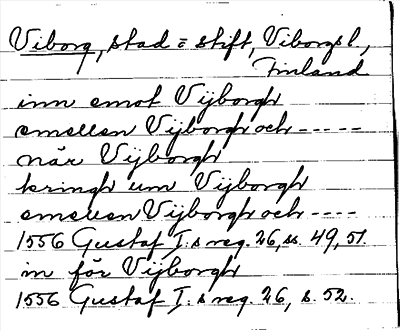 Viborg, stad = stift, Viborgs l.,
Finland
inn emot Vijborgh
emellen Vijborgh och -----
när Vijborgh
kringh um Vijborgh
emellen Vijborgh och ----
1556 Gustaf I:s reg. 26, ss. 49, 51.
in för Vijborgh
1556 Gustaf I:s reg. 26, s. 52.